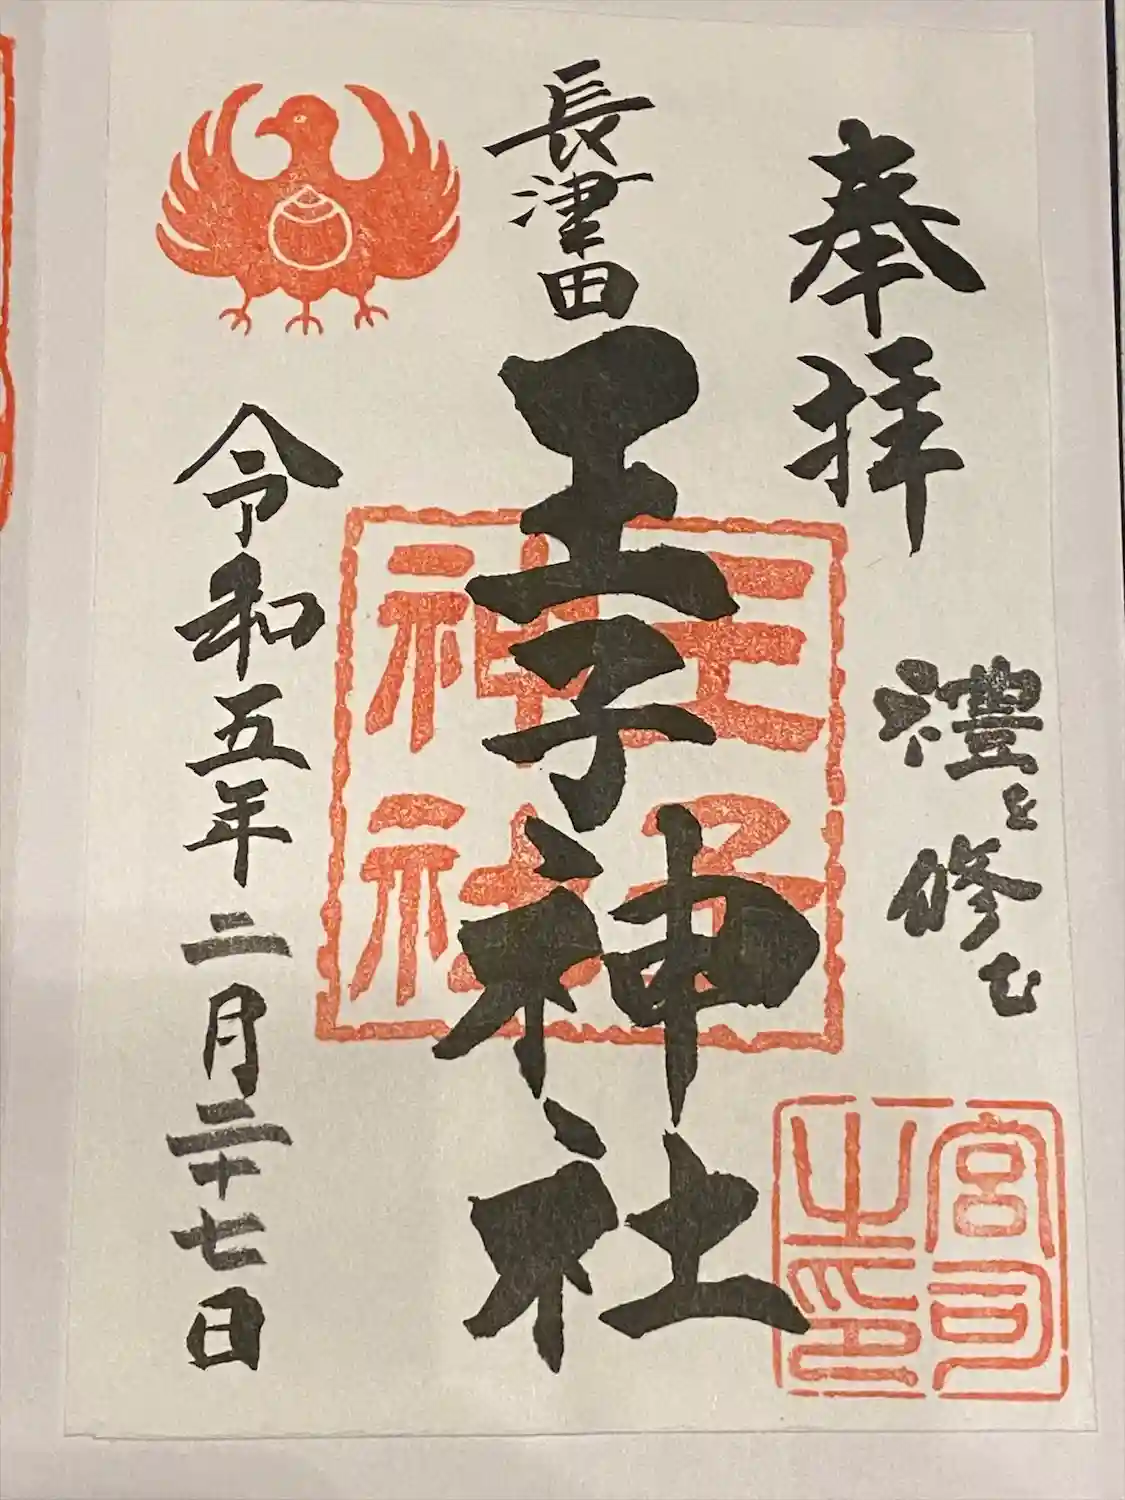 奉拝
禮を修む
長津田
王子神社
令和五年二月二十七日
王子
神社
宮司
之印